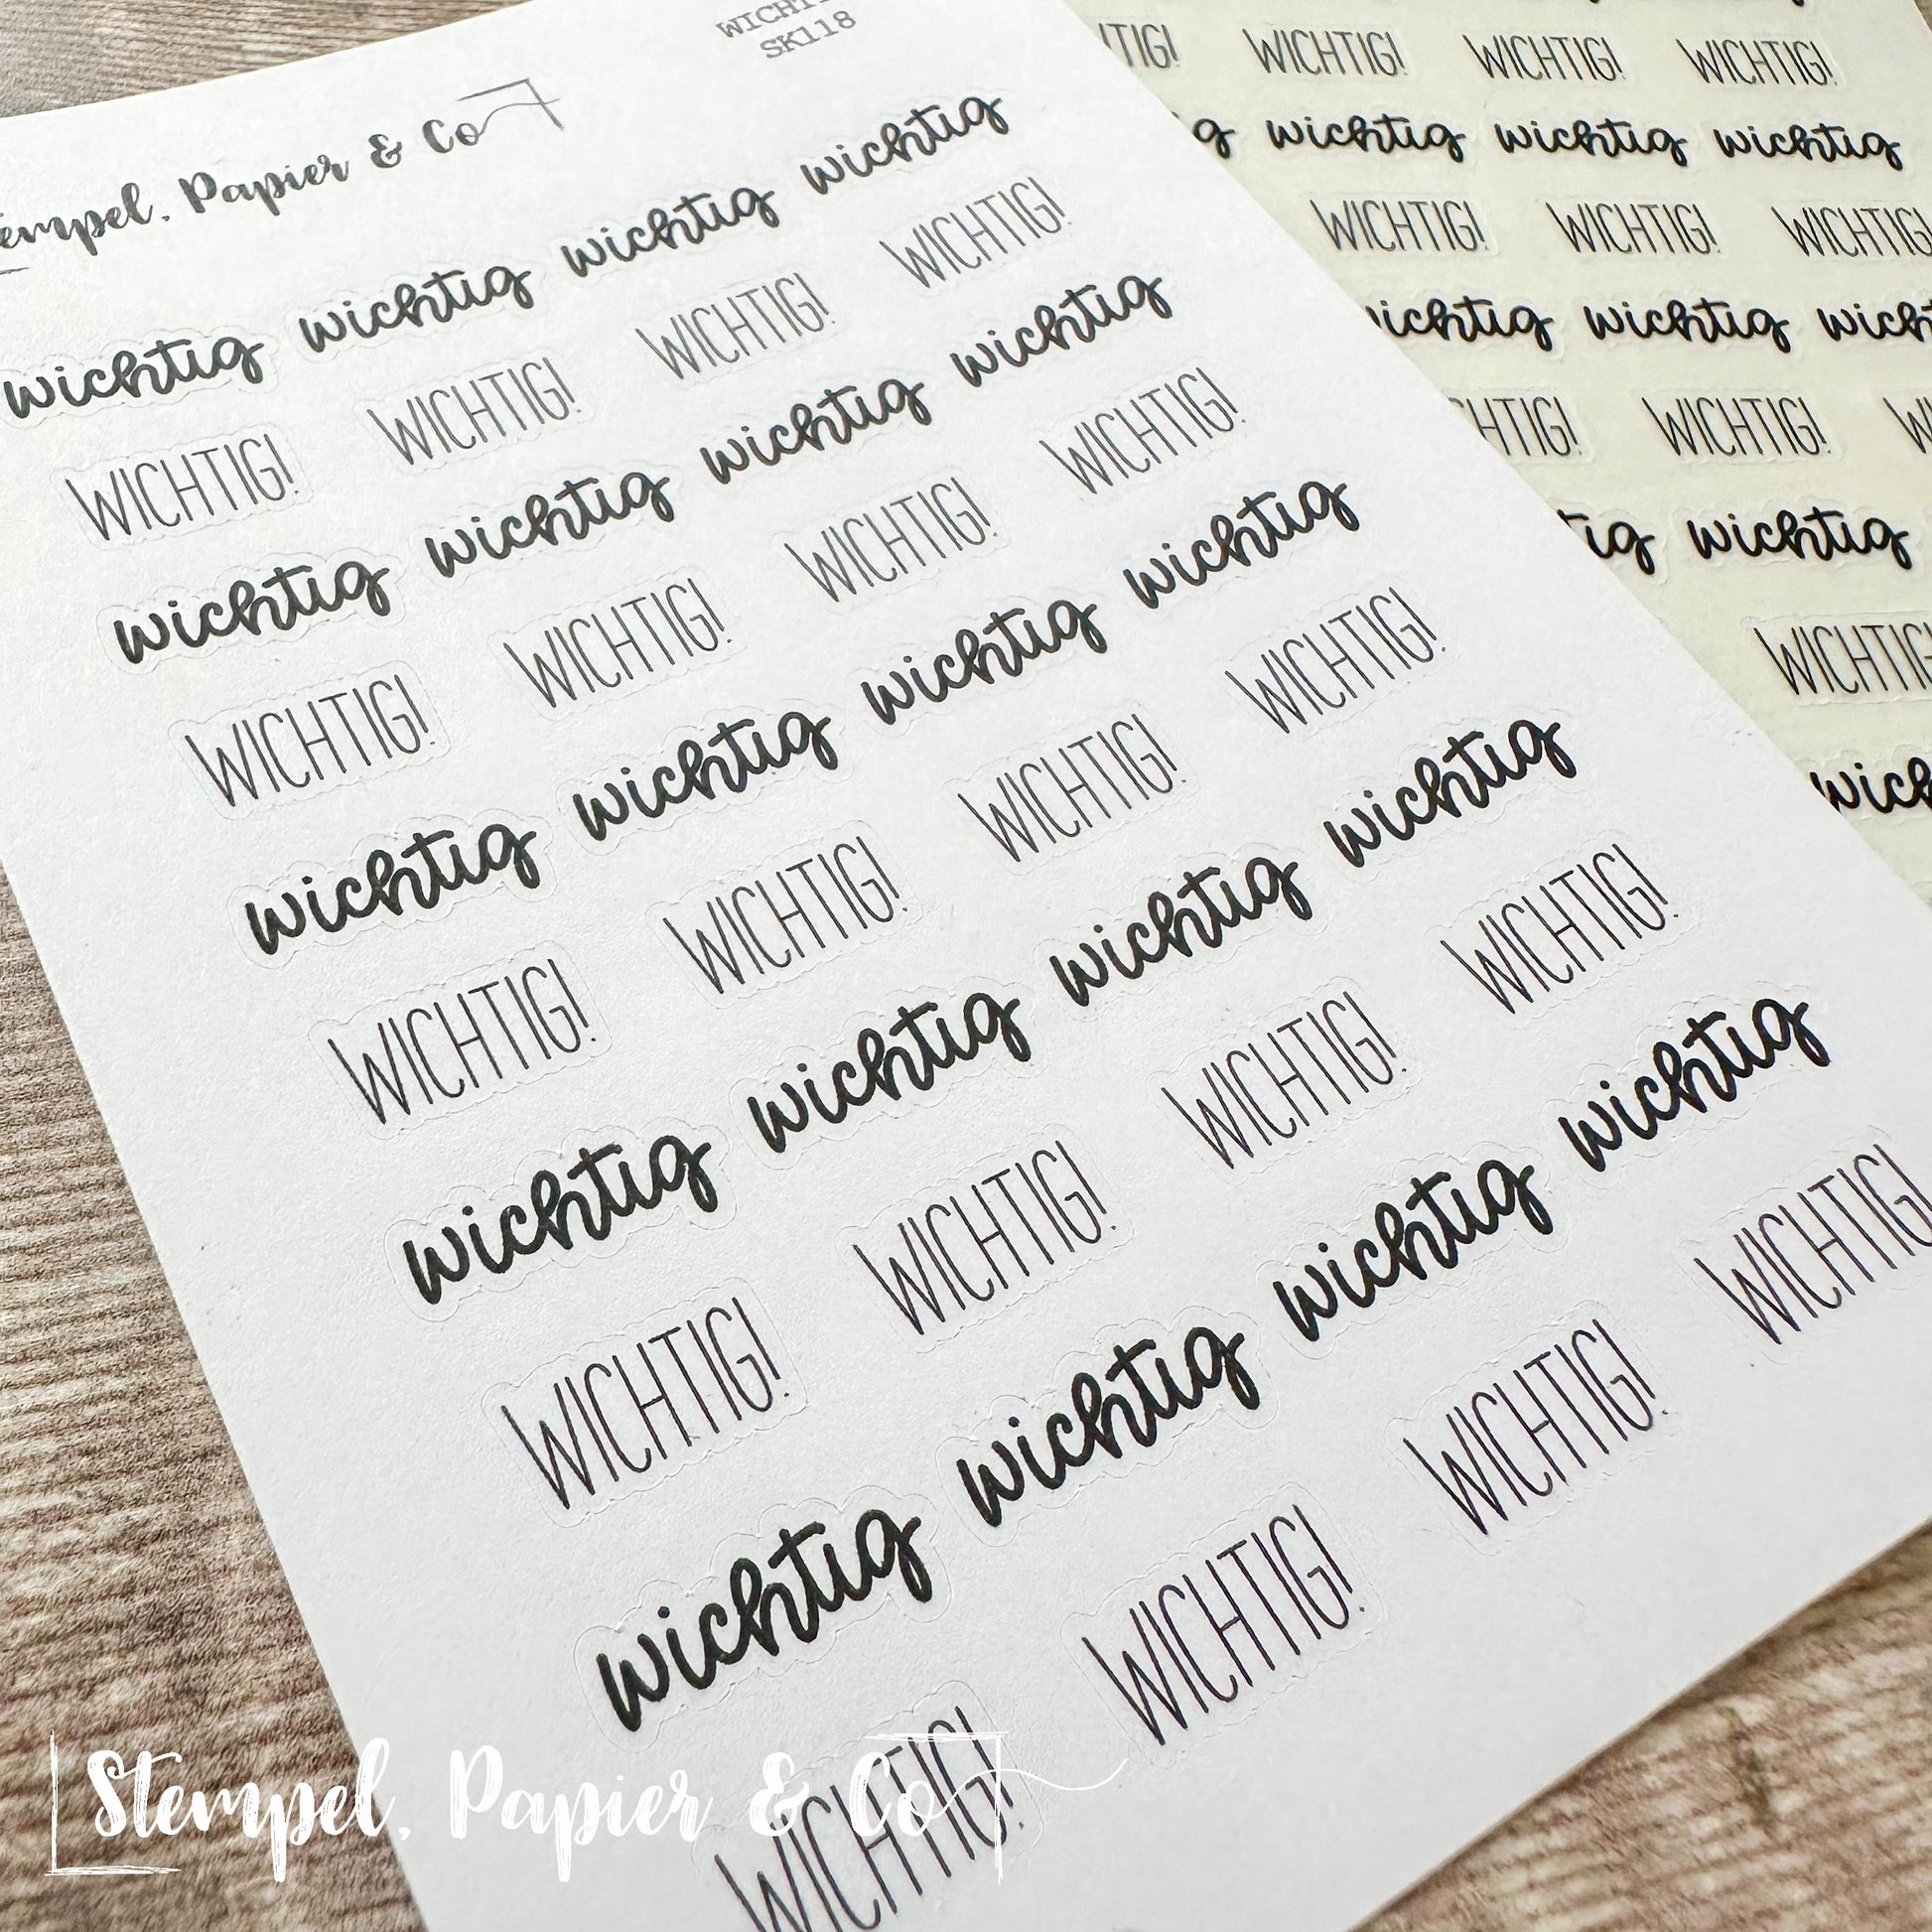 WICHTIG
SK118
Stempel, Papier & Co
wichtig wichtig wichtig wichtig
WICHTIG! WICHTIG! WICHTIG! WICHTIG!
wichtig wichtig wichtig wichtig
WICHTIG! WICHTIG! WICHTIG! WICHTIG!
wichtig wichtig wichtig wichtig
WICHTIG! WICHTIG! WICHTIG! WICHTIG!
wichtig wichtig wichtig wichtig
WICHTIG! WICHTIG! WICHTIG! WICHTIG!
wichtig wichtig wichtig wichtig
WICHTIG! WICHTIG! WICHTIG! WICHTIG
WICHTIG! WICHTIG! WICHTIG!
wichtig wichtig wichtig
WICHTIG! WICHTIG! WICHTIG
wichtig wichtig
WICHTIG!
wichtig
WICHTIG
Stempel, Papier & Co